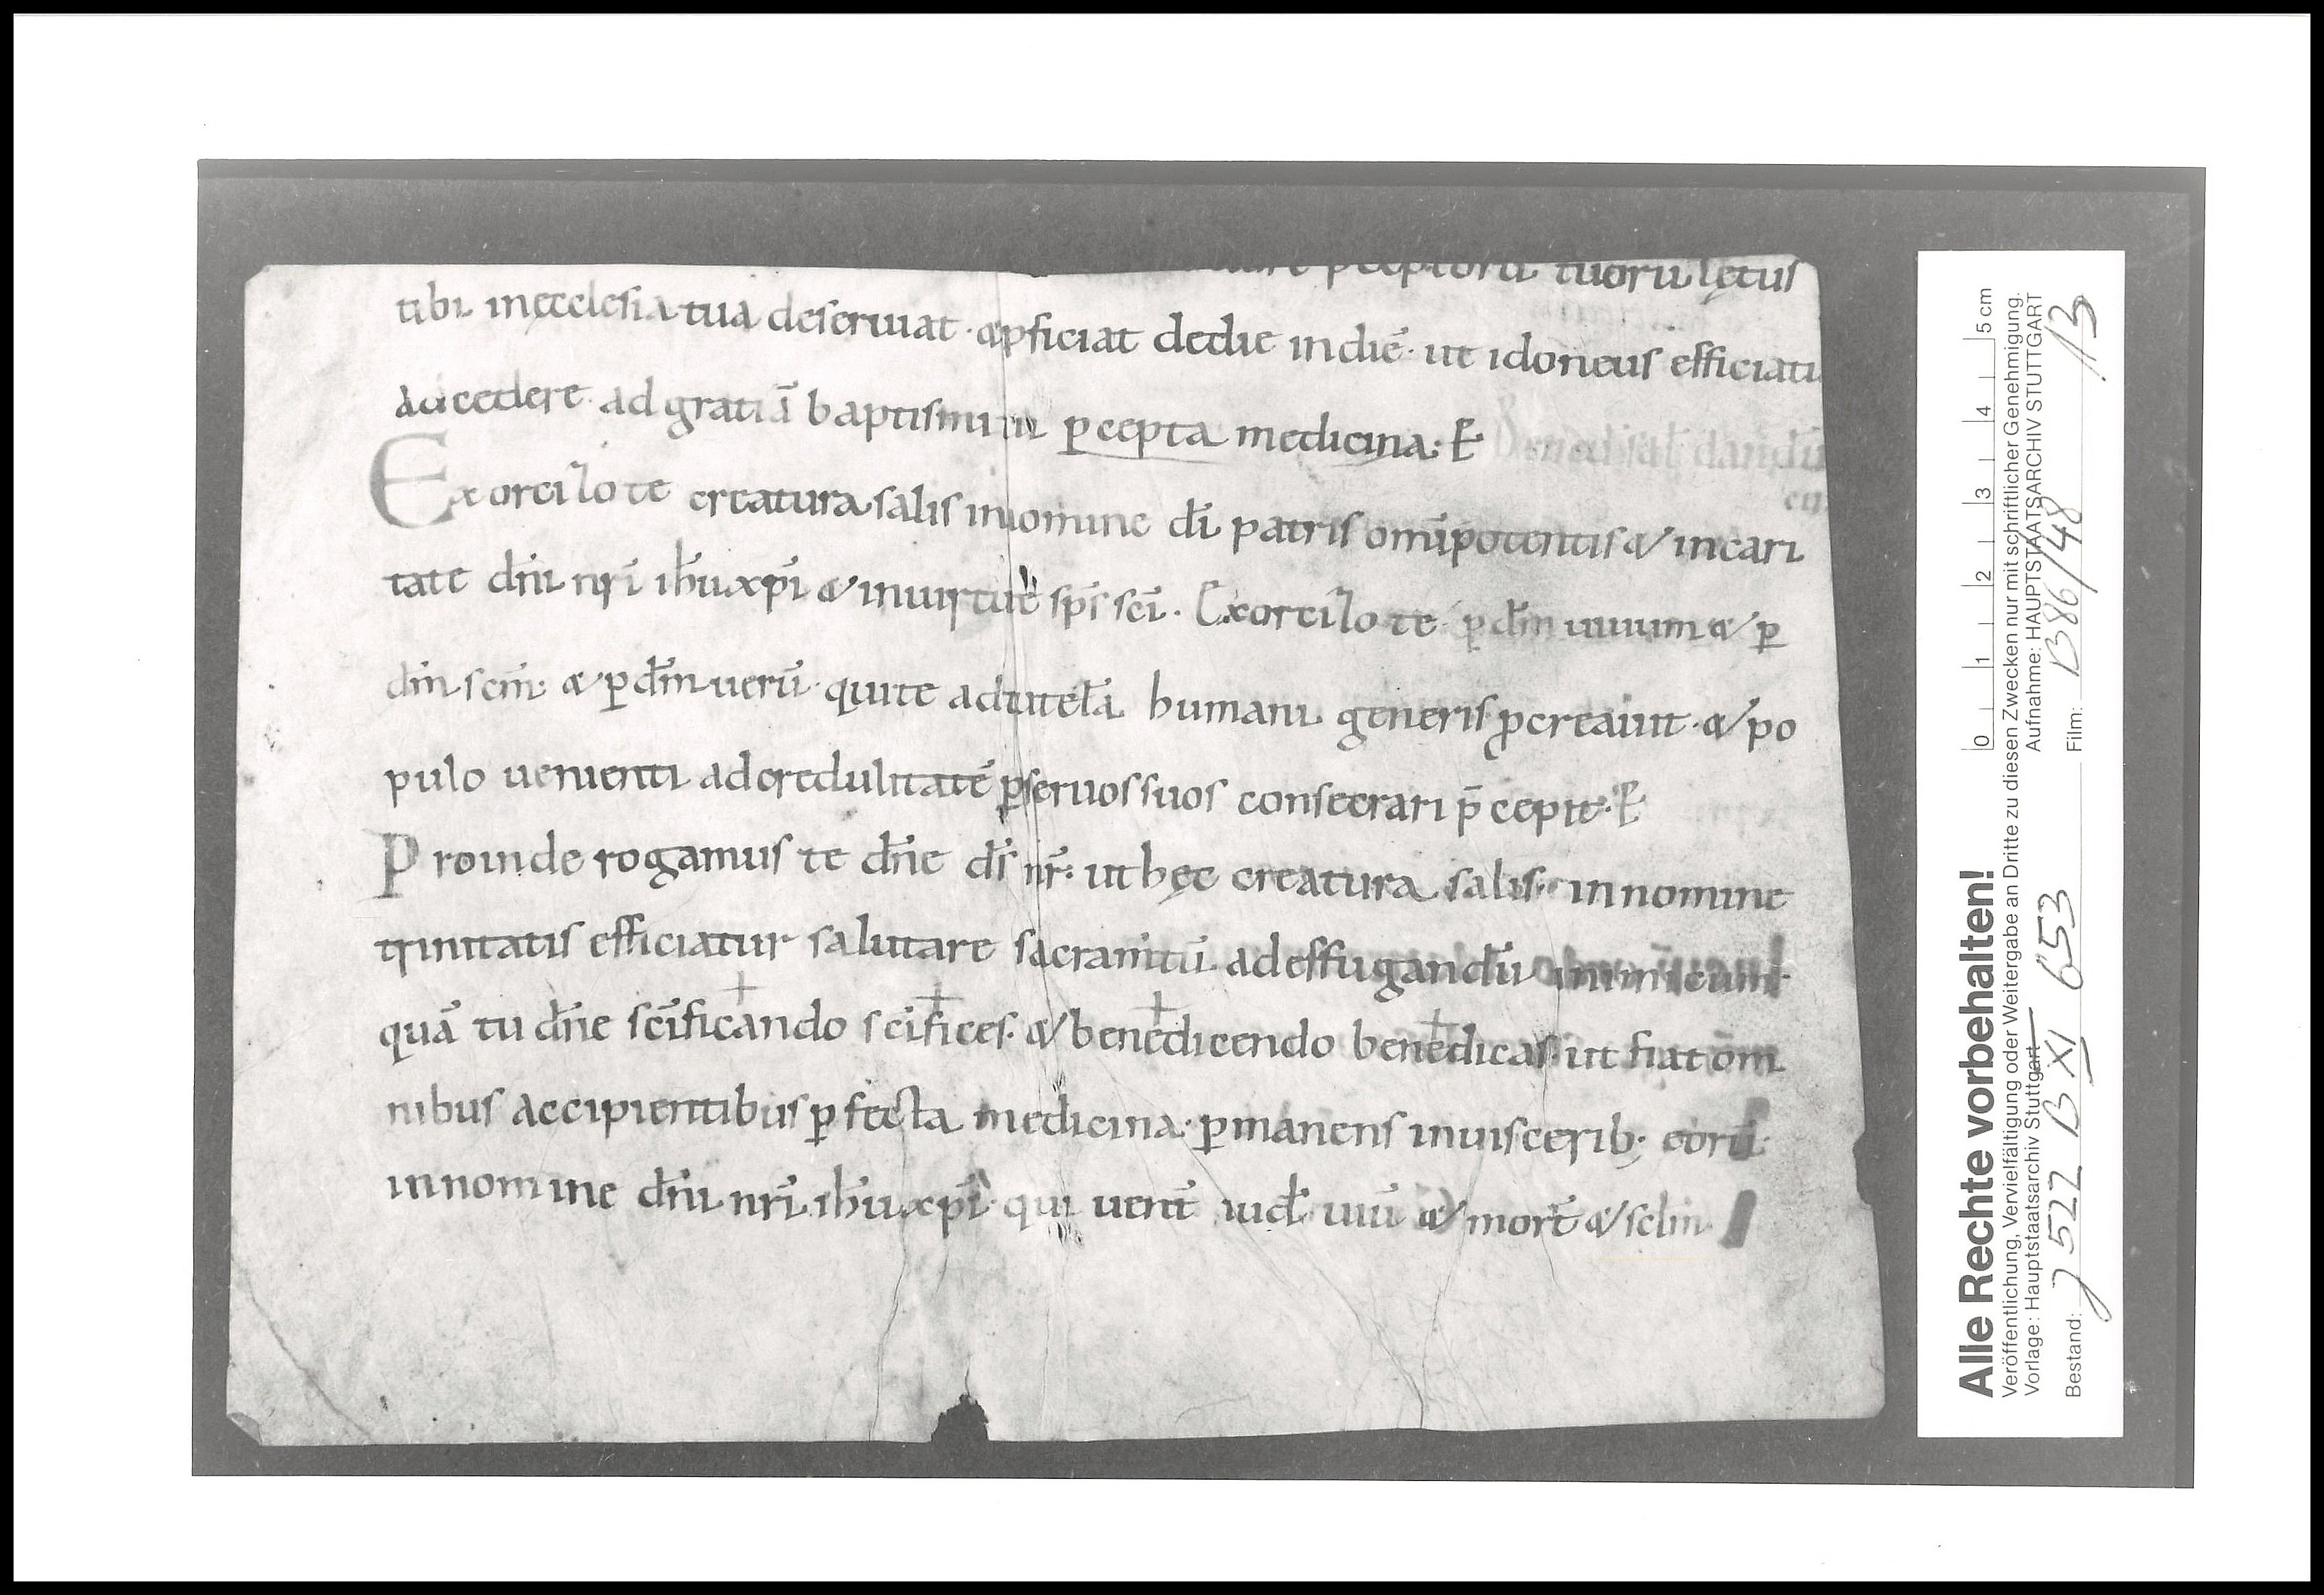 p̄ceptorū tuorū lętus
tibi inęcclesia tua deseruiat · & ꝓficiat dedie indiē · ut idoneus efficiatu
accedere ad gratiā baptismi tui ꝑcepta medicina : E
Bened salis dandū
Exorcizo te creatura salis innomine dī patris omīpotentis & incari
tate dn̄i nr̄i ih̄u xp̄i & inuirtute sp̄s sc̄i · Exorcizo te ꝑ dm̄ uiuum & ꝑ
dm̄ scm̄ · & ꝑ dm̄ uerū · qui te adtutelā humani generis ꝓcreauit · & po
pulo uenienti adcredulitatē ꝑ seruos suos consecrari p̄cepit · E
Proinde rogamus te dn̄e ds̄ nr̄ : ut hęc creatura salis innomine
trinitatis efficiatur salutare sacram̄tū adeffugandū inimicum ·
quā tu dn̄e sc̄ificando + sc̄ifices + · & benedicendo + benedicas + · ut fiat om̄
nibus accipientibus ꝑfecta medicina · ꝑmanens inuiscerib; eorū ·
innomine dn̄i nr̄i ih̄u xp̄i · qui uent̄ iud̄ uiū & mort̄ & sclm̄
Alle Rechte vorbehalten!
Veröffentlichung, Vervielfältigung oder Weitergabe an Dritte zu diesen Zwecken nur mit schriftlicher Genehmigung.
Vorlage: Hauptstaatsarchiv Stuttgart
Aufnahme: HAUPTSTAATSARCHIV STUTTGART
Bestand: J 522 B XI 653
Film: B86/48 /13
0 1 2 3 4 5 cm